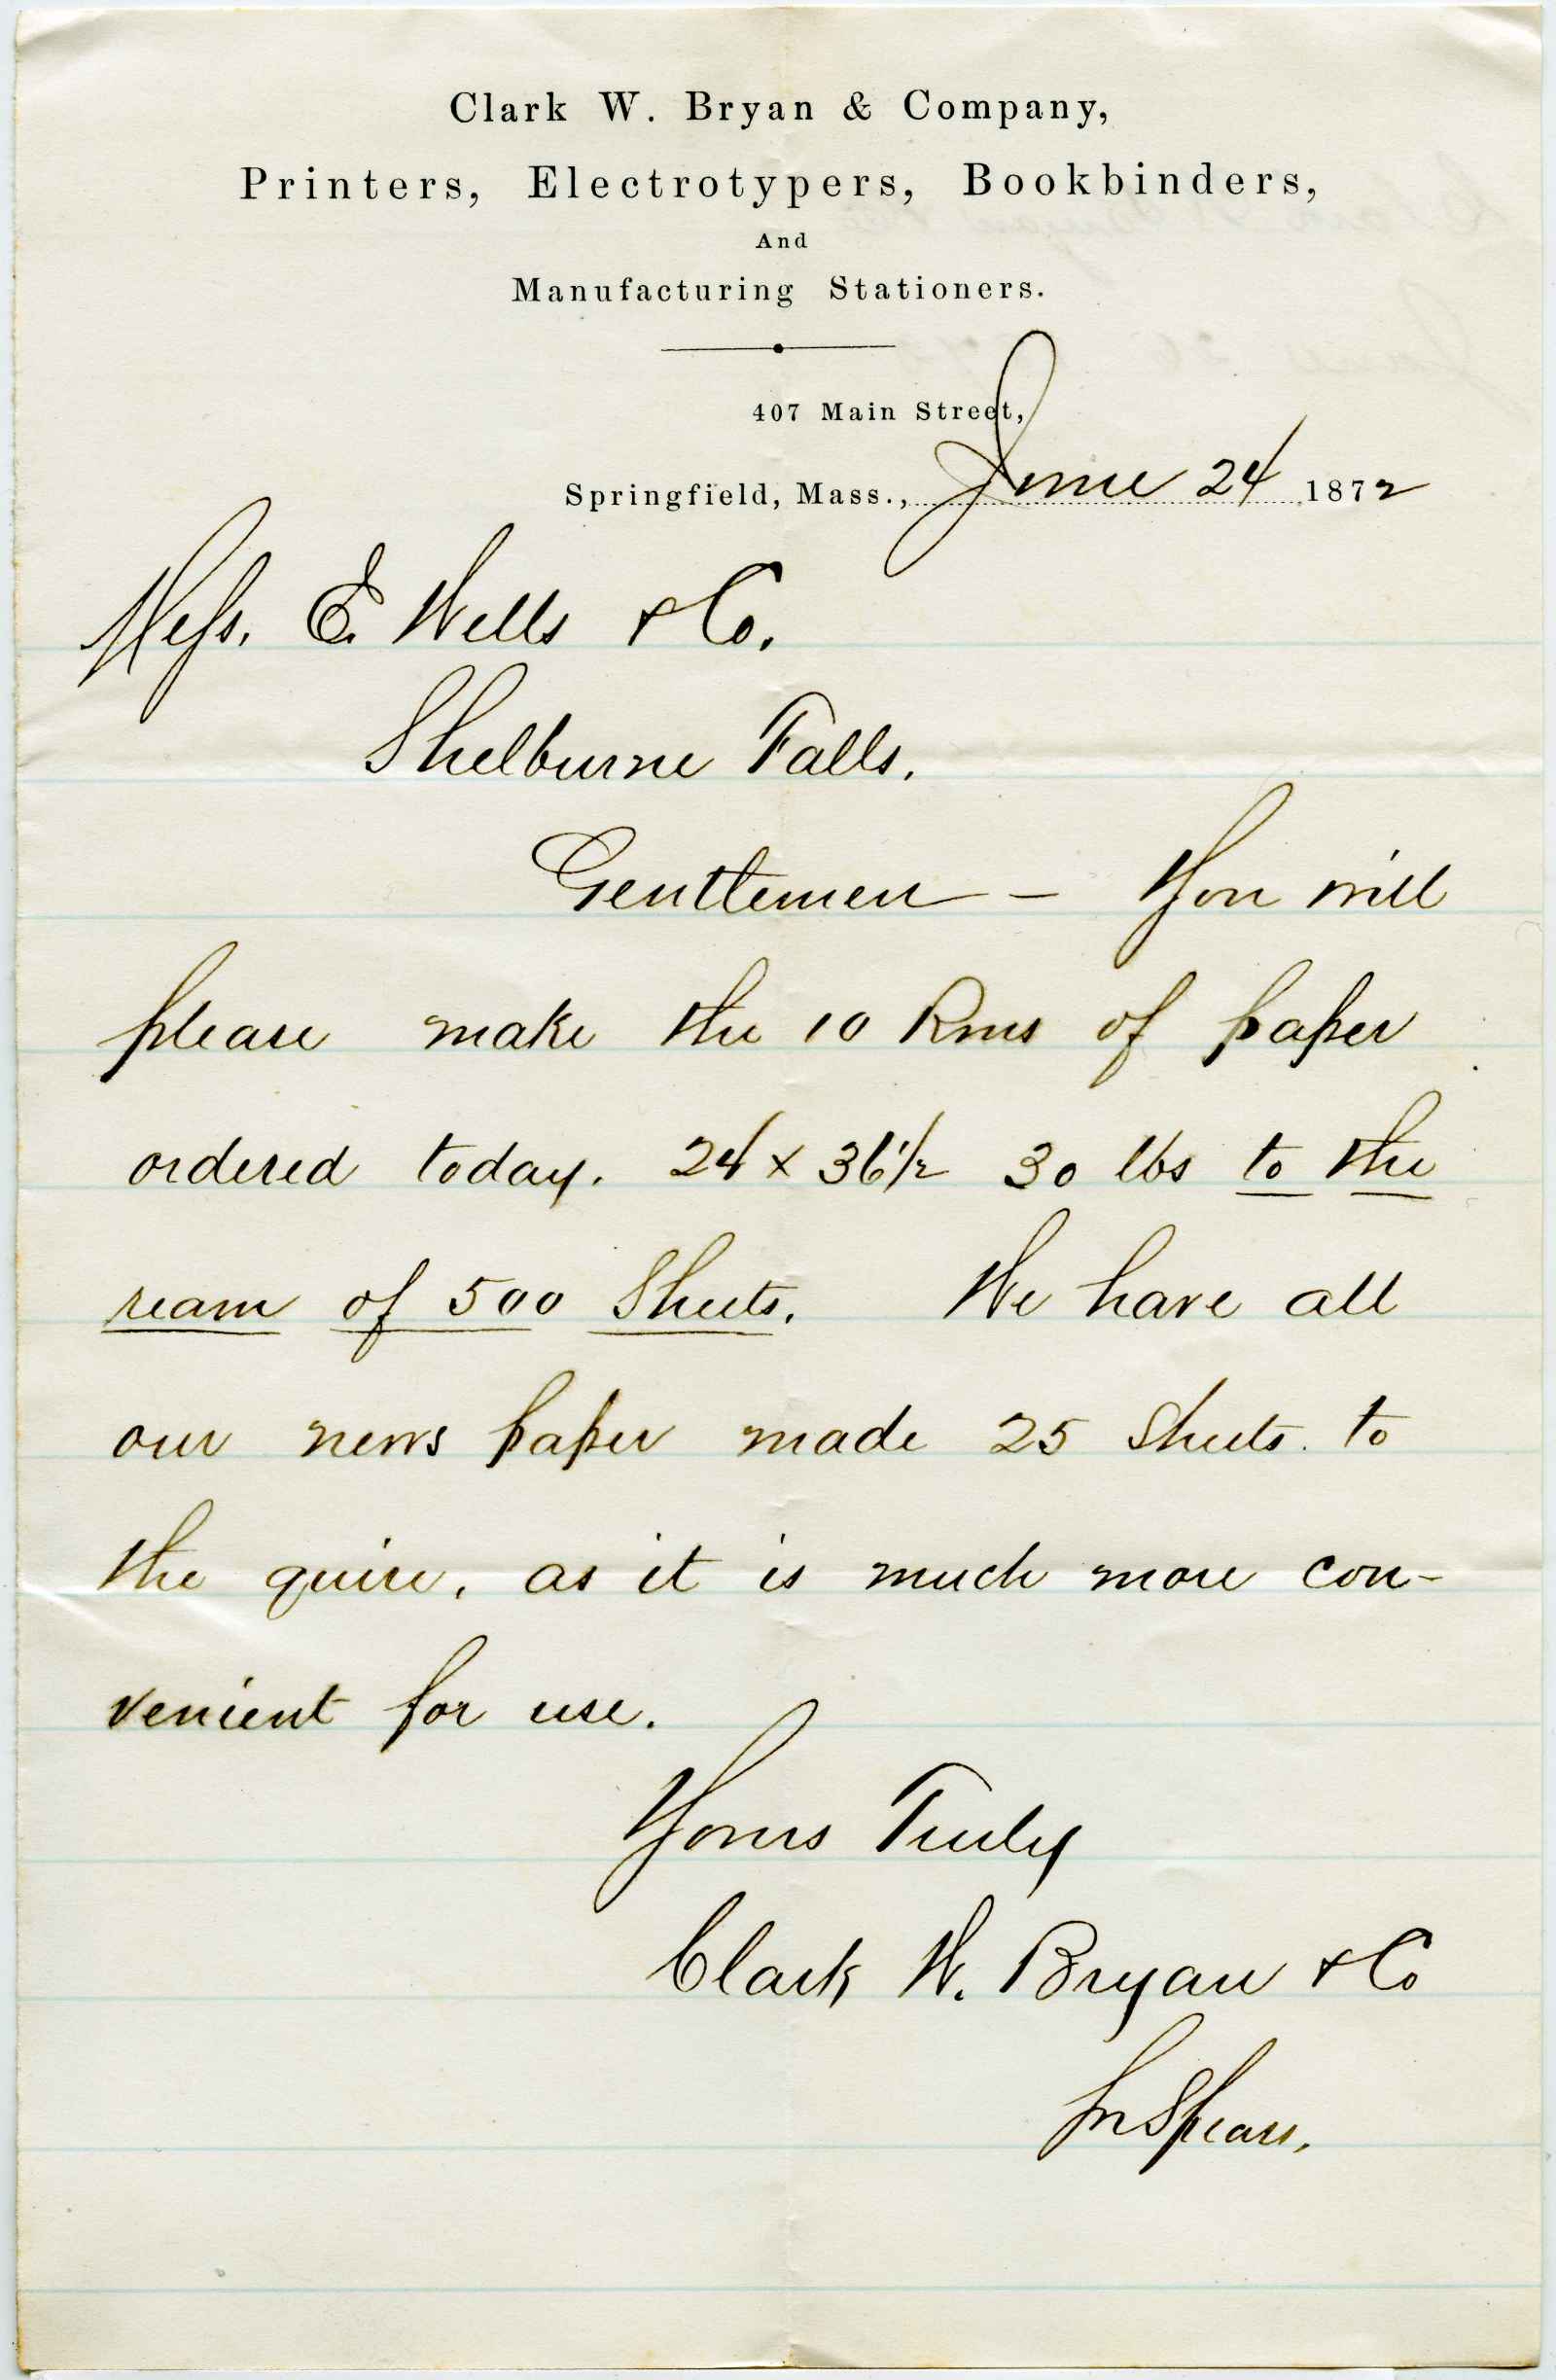 Clark W. Bryan & Company,
Printers, Electrotypers, Bookbinders,
And
Manufacturing Stationers.
407 Main Street,
Springfield, Mass., June 24 1872
Mess. E. Wells & Co.
Shelburne Falls.
Gentlemen — You will
please make the 10 Rms of paper
ordered today. 24 x 36 1/2 30 lbs to the
ream of 500 Sheets. We have all
our news paper made 25 Sheets to
the quire, as it is much more con-
venient for use.
Yours Truly
Clark W. Bryan & Co
Spears.